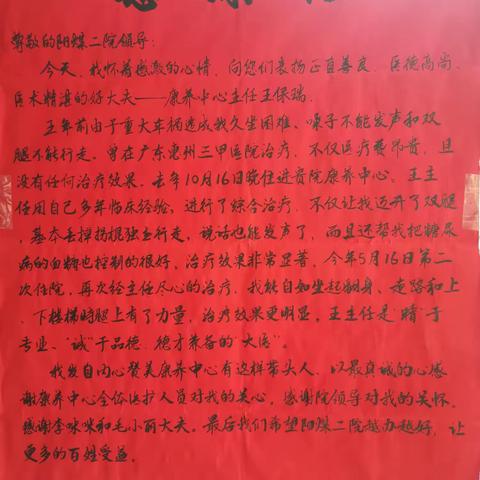 尊敬的阳煤二院领导:
今天,我怀着感激的心情,向您们表扬正直善良、医德高尚、
医术精湛的好大夫——康养中心主任王保瑞.
五年前由于重大车祸造成我久坐困难、嗓子不能发声和双
腿不能行走。曾在广东惠州三甲医院治疗,不仅医疗费昂贵,且
没有任何治疗效果。去年10月16日我住进贵院康养中心。王主
任用自己多年临床经验,进行了综合治疗,不仅让我迈开了双腿
,基本丢掉拐棍独立行走,说话也能发声了,而且还帮我把糖尿
病的血糖也控制的很好,治疗效果非常显著,今年5月16日第二
次住院,再次经主任尽心的治疗,我能自如坐起翻身、走路和上
、下楼梯时腿上有了力量,治疗效果更明显。王主任是"精"于
专业、"诚"于品德、德才兼备的"大医"。
我发自内心赞美康养中心有这样带头人,以最真诚的心感
谢康养中心全体医护人员对我的关心,感谢院领导对我的关怀。
感谢李咪咪和毛小丽大夫。最后我们希望阳煤二院越办越好,让
更多的百姓受益。